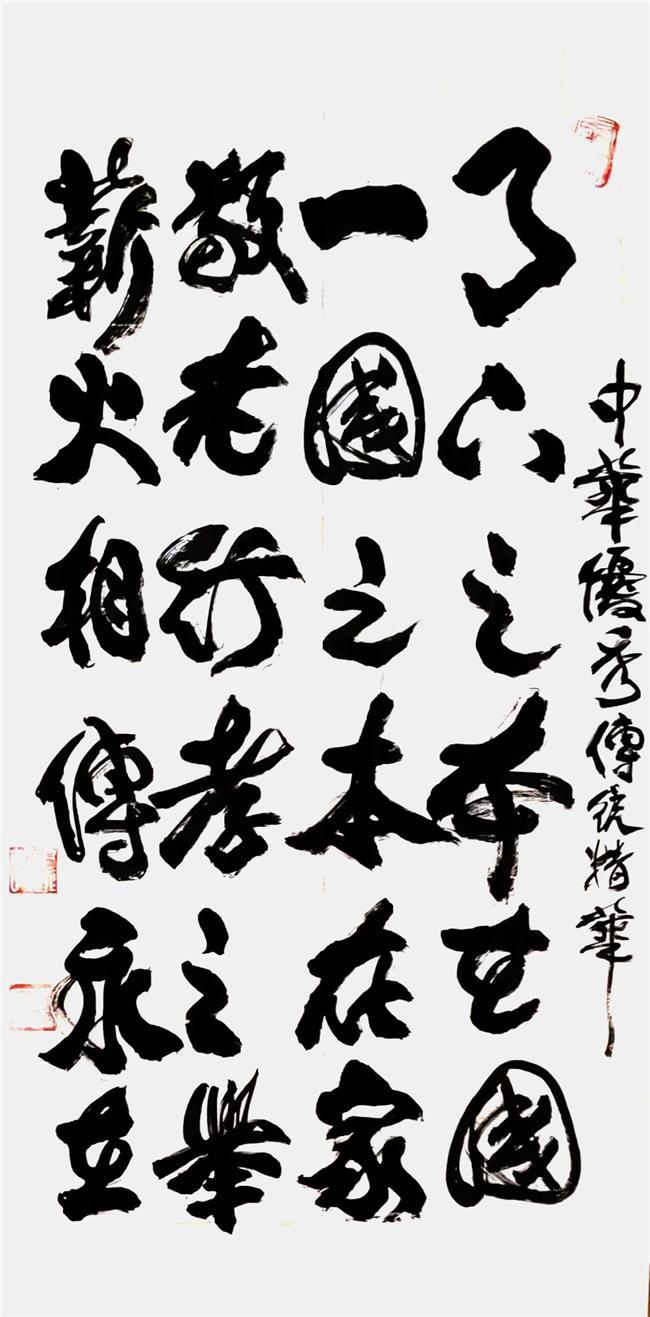 中華優秀傳統精華
天下之本在國
一國之本在家
敬老行孝之舉
薪火相傳永在